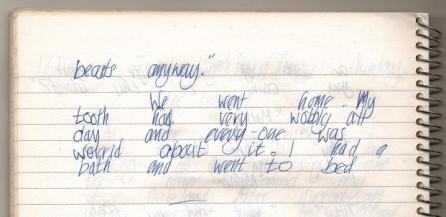 beasts anyway."
We went home. My
tooth had very wobbly all
day and every-one was
worrid about it. I had a
bath and went to bed